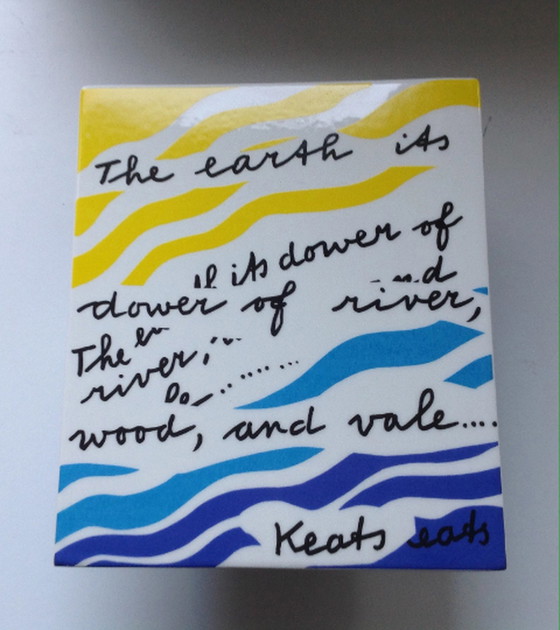 The earth its
its dower of
dower of river,
The
river,
wood, and vale....
Keats eats